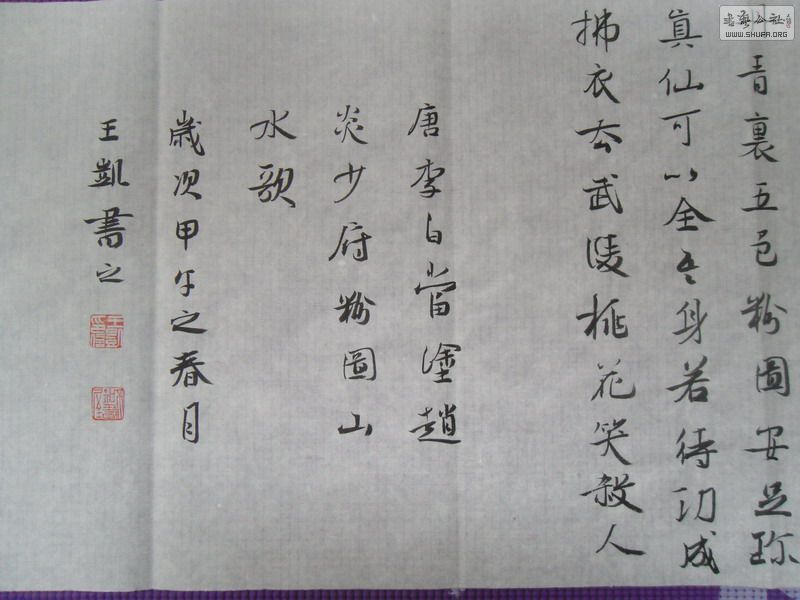 丹青裏五色粉圖安足珍
真仙可以全吾身若待功成
拂衣去武陵桃花笑殺人
唐李白當塗趙
炎少府粉圖山
水歌
歲次甲午之春月
王凱書之
書藝公社
WWW.SHUFA.ORG